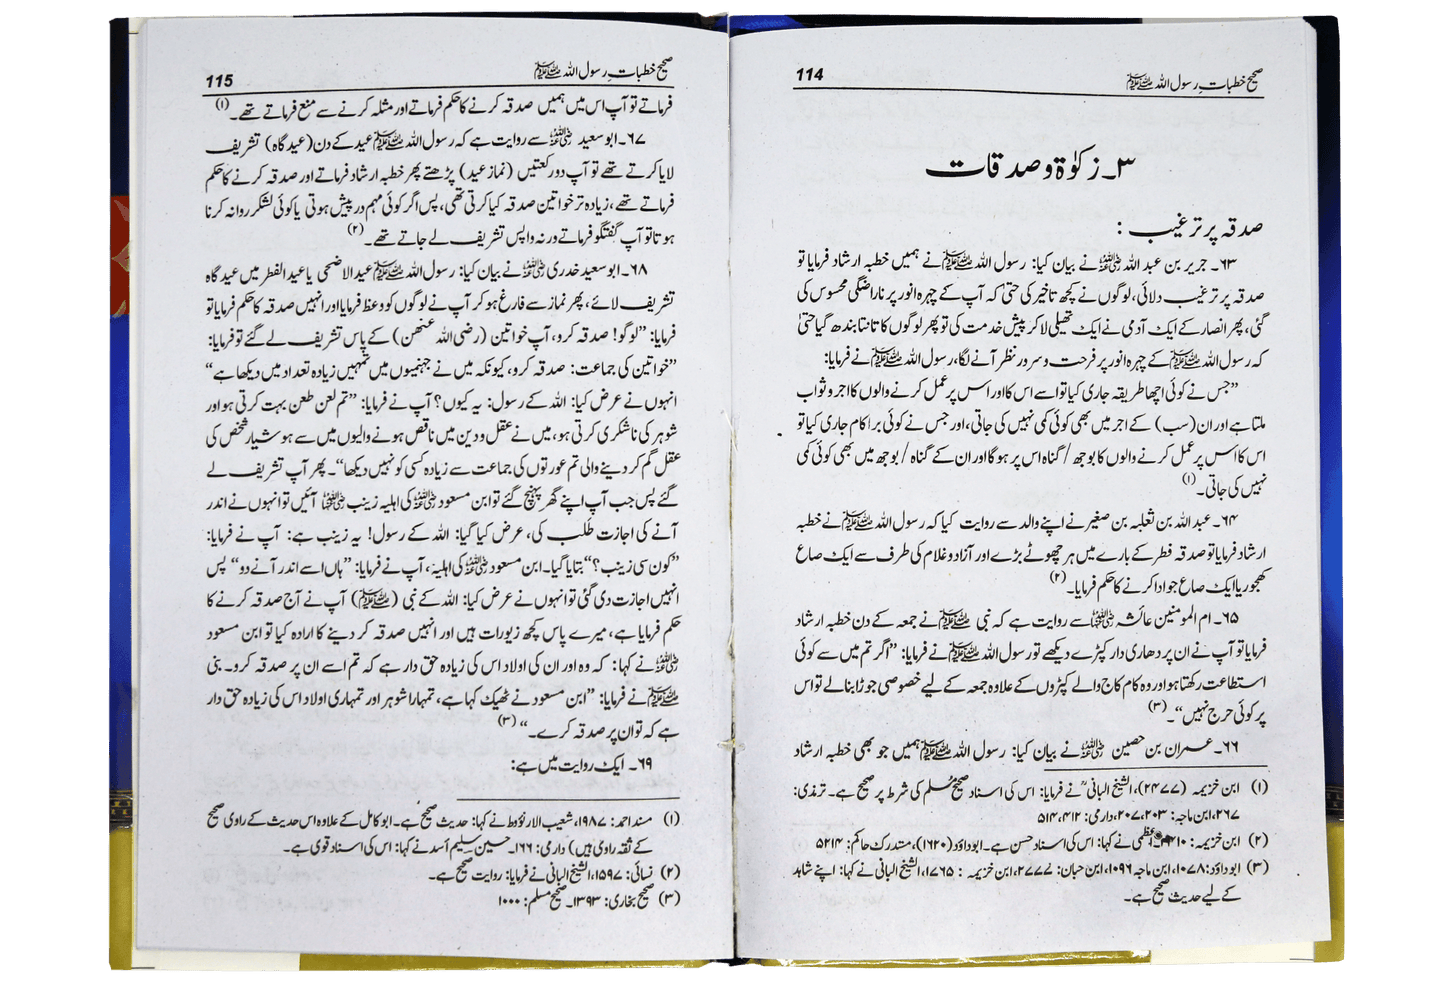 صحیح خطبات رسول اللہ ﷺ
114
۳۔ زکوٰۃ و صدقات
صدقہ پر ترغیب :
۶۳۔ جریر بن عبد اللہ رضی اللہ عنہ نے بیان کیا: رسول اللہ ﷺ نے ہمیں خطبہ ارشاد فرمایا تو
صدقہ پر ترغیب دلائی، لوگوں نے کچھ تاخیر کی حتیٰ کہ آپ کے چہرہ انور پر ناراضگی محسوس کی
گئی، پھر انصار کے ایک آدمی نے ایک تھیلی لا کر پیش خدمت کی تو پھر لوگوں کا تانتا بندھ گیا حتیٰ
کہ رسول اللہ ﷺ کے چہرہ انور پر فرحت و سرور نظر آنے لگا، رسول اللہ ﷺ نے فرمایا:
”جس نے کوئی اچھا طریقہ جاری کیا تو اسے اس کا اور اس پر عمل کرنے والوں کا اجر و ثواب
ملتا ہے اور ان (سب) کے اجر میں بھی کوئی کمی نہیں کی جاتی، اور جس نے کوئی برا کام جاری کیا تو
اس کا اس پر عمل کرنے والوں کا بوجھ / گناہ اس پر ہوگا اور ان کے گناہ / بوجھ میں بھی کوئی کمی
نہیں کی جاتی۔ (۱)
۶۴۔ عبد اللہ بن ثعلبہ بن صغیر نے اپنے والد سے روایت کیا کہ رسول اللہ ﷺ نے خطبہ
ارشاد فرمایا تو صدقہ فطر کے بارے میں ہر چھوٹے بڑے اور آزاد و غلام کی طرف سے ایک صاع
کھجور یا ایک صاع جو ادا کرنے کا حکم فرمایا۔ (۲)
۶۵۔ ام المومنین عائشہ رضی اللہ عنہا سے روایت ہے کہ نبی ﷺ نے جمعہ کے دن خطبہ ارشاد
فرمایا تو آپ نے ان پر دھاری دار کپڑے دیکھے تو رسول اللہ ﷺ نے فرمایا: ”اگر تم میں سے کوئی
استطاعت رکھتا ہو اور وہ کام کاج والے کپڑوں کے علاوہ جمعہ کے لیے خصوصی جوڑا بنا لے تو اس
پر کوئی حرج نہیں“۔ (۳)
۶۶۔ عمران بن حصین رضی اللہ عنہ نے بیان کیا: رسول اللہ ﷺ ہمیں جو بھی خطبہ ارشاد
(۱) ابن خزیمہ (۲۴۷۷)، الشیخ البانی نے فرمایا: اس کی اسناد صحیح مسلم کی شرط پر صحیح ہے۔ ترمذی:
۲۶۷، ابن ماجہ: ۲۰۳، ۲۰۷، داری: ۵۱۲، ۵۱۴
(۲) ابن خزیمہ: ۲۴۱۰، اعظمی نے کہا: اس کی اسناد حسن ہے۔ ابوداؤد (۱۶۲۰)، مستدرک حاکم: ۵۲۱۴
(۳) ابوداؤد: ۱۰۷۸، ابن ماجہ ۱۰۹۶، ابن حبان: ۲۷۷۷، ابن خزیمہ : ۱۷۶۵، الشیخ البانی نے کہا: اپنے شاہد
کے لیے حدیث صحیح ہے۔
صحیح خطبات رسول اللہ ﷺ
115
فرماتے تو آپ اس میں ہمیں صدقہ کرنے کا حکم فرماتے اور مثلہ کرنے سے منع فرماتے تھے۔ (۱)
۶۷۔ ابو سعید رضی اللہ عنہ سے روایت ہے کہ رسول اللہ ﷺ عید کے دن (عید گاہ) تشریف
لایا کرتے تھے تو آپ دو رکعتیں (نماز عید) پڑھتے پھر خطبہ ارشاد فرماتے اور صدقہ کرنے کا حکم
فرماتے تھے، زیادہ تر خواتین صدقہ کیا کرتی تھی، پس اگر کوئی مہم در پیش ہوتی یا کوئی لشکر روانہ کرنا
ہوتا تو آپ گفتگو فرماتے ورنہ واپس تشریف لے جاتے تھے۔ (۲)
۶۸۔ ابو سعید خدری رضی اللہ عنہ نے بیان کیا: رسول اللہ ﷺ عید الاضحی یا عید الفطر میں عید گاہ
تشریف لائے، پھر نماز سے فارغ ہو کر آپ نے لوگوں کو وعظ فرمایا اور انہیں صدقہ کا حکم فرمایا تو
فرمایا: ”لوگو! صدقہ کرو، آپ خواتین (رضی اللہ عنھن) کے پاس تشریف لے گئے تو فرمایا:
”خواتین کی جماعت: صدقہ کرو، کیونکہ میں نے جہنمیوں میں تمہیں زیادہ تعداد میں دیکھا ہے“
انہوں نے عرض کیا: اللہ کے رسول: یہ کیوں؟ آپ نے فرمایا: ”تم لعن طعن بہت کرتی ہو اور
شوہر کی ناشکری کرتی ہو، میں نے عقل و دین میں ناقص ہونے والیوں میں سے ہوشیار شخص کی
عقل گم کر دینے والی تم عورتوں کی جماعت سے زیادہ کسی کو نہیں دیکھا“۔ پھر آپ تشریف لے
گئے پس جب آپ اپنے گھر پہنچ گئے تو ابن مسعود رضی اللہ عنہ کی اہلیہ زینب رضی اللہ عنہا آئیں تو انہوں نے اندر
آنے کی اجازت طلب کی، عرض کیا گیا: اللہ کے رسول! یہ زینب ہے: آپ نے فرمایا:
”کون سی زینب؟“ بتایا گیا۔ ابن مسعود رضی اللہ عنہ کی اہلیہ، آپ نے فرمایا: ”ہاں اسے اندر آنے دو“ پس
انہیں اجازت دی گئی تو انہوں نے عرض کیا: اللہ کے نبی (ﷺ) آپ نے آج صدقہ کرنے کا
حکم فرمایا ہے، میرے پاس کچھ زیورات ہیں اور انہیں صدقہ کر دینے کا ارادہ کیا تو ابن مسعود
رضی اللہ عنہ نے کہا: کہ وہ اور ان کی اولاد اس کی زیادہ حق دار ہے کہ تم اسے ان پر صدقہ کرو۔ نبی
ﷺ نے فرمایا: ”ابن مسعود نے ٹھیک کہا ہے، تمہارا شوہر اور تمہاری اولاد اس کی زیادہ حق دار
ہے کہ تو ان پر صدقہ کرے۔“ (۳)
۶۹۔ ایک روایت میں ہے:
(۱) مسند احمد: ۱۹۸۷، شعیب الارنؤوط نے کہا: حدیث صحیح ہے۔ ابو کامل کے علاوہ اس حدیث کے راوی صحیح
کے ثقہ راوی ہیں) داری: ۱۶۶۔ حسین سلیم أسد نے کہا: اس کی اسناد قوی ہے۔
(۲) نسائی: ۱۵۹۷، الشیخ البانی نے فرمایا: روایت صحیح ہے۔
(۳) صحیح بخاری: ۱۳۹۳۔ صحیح مسلم: ۱۰۰۰